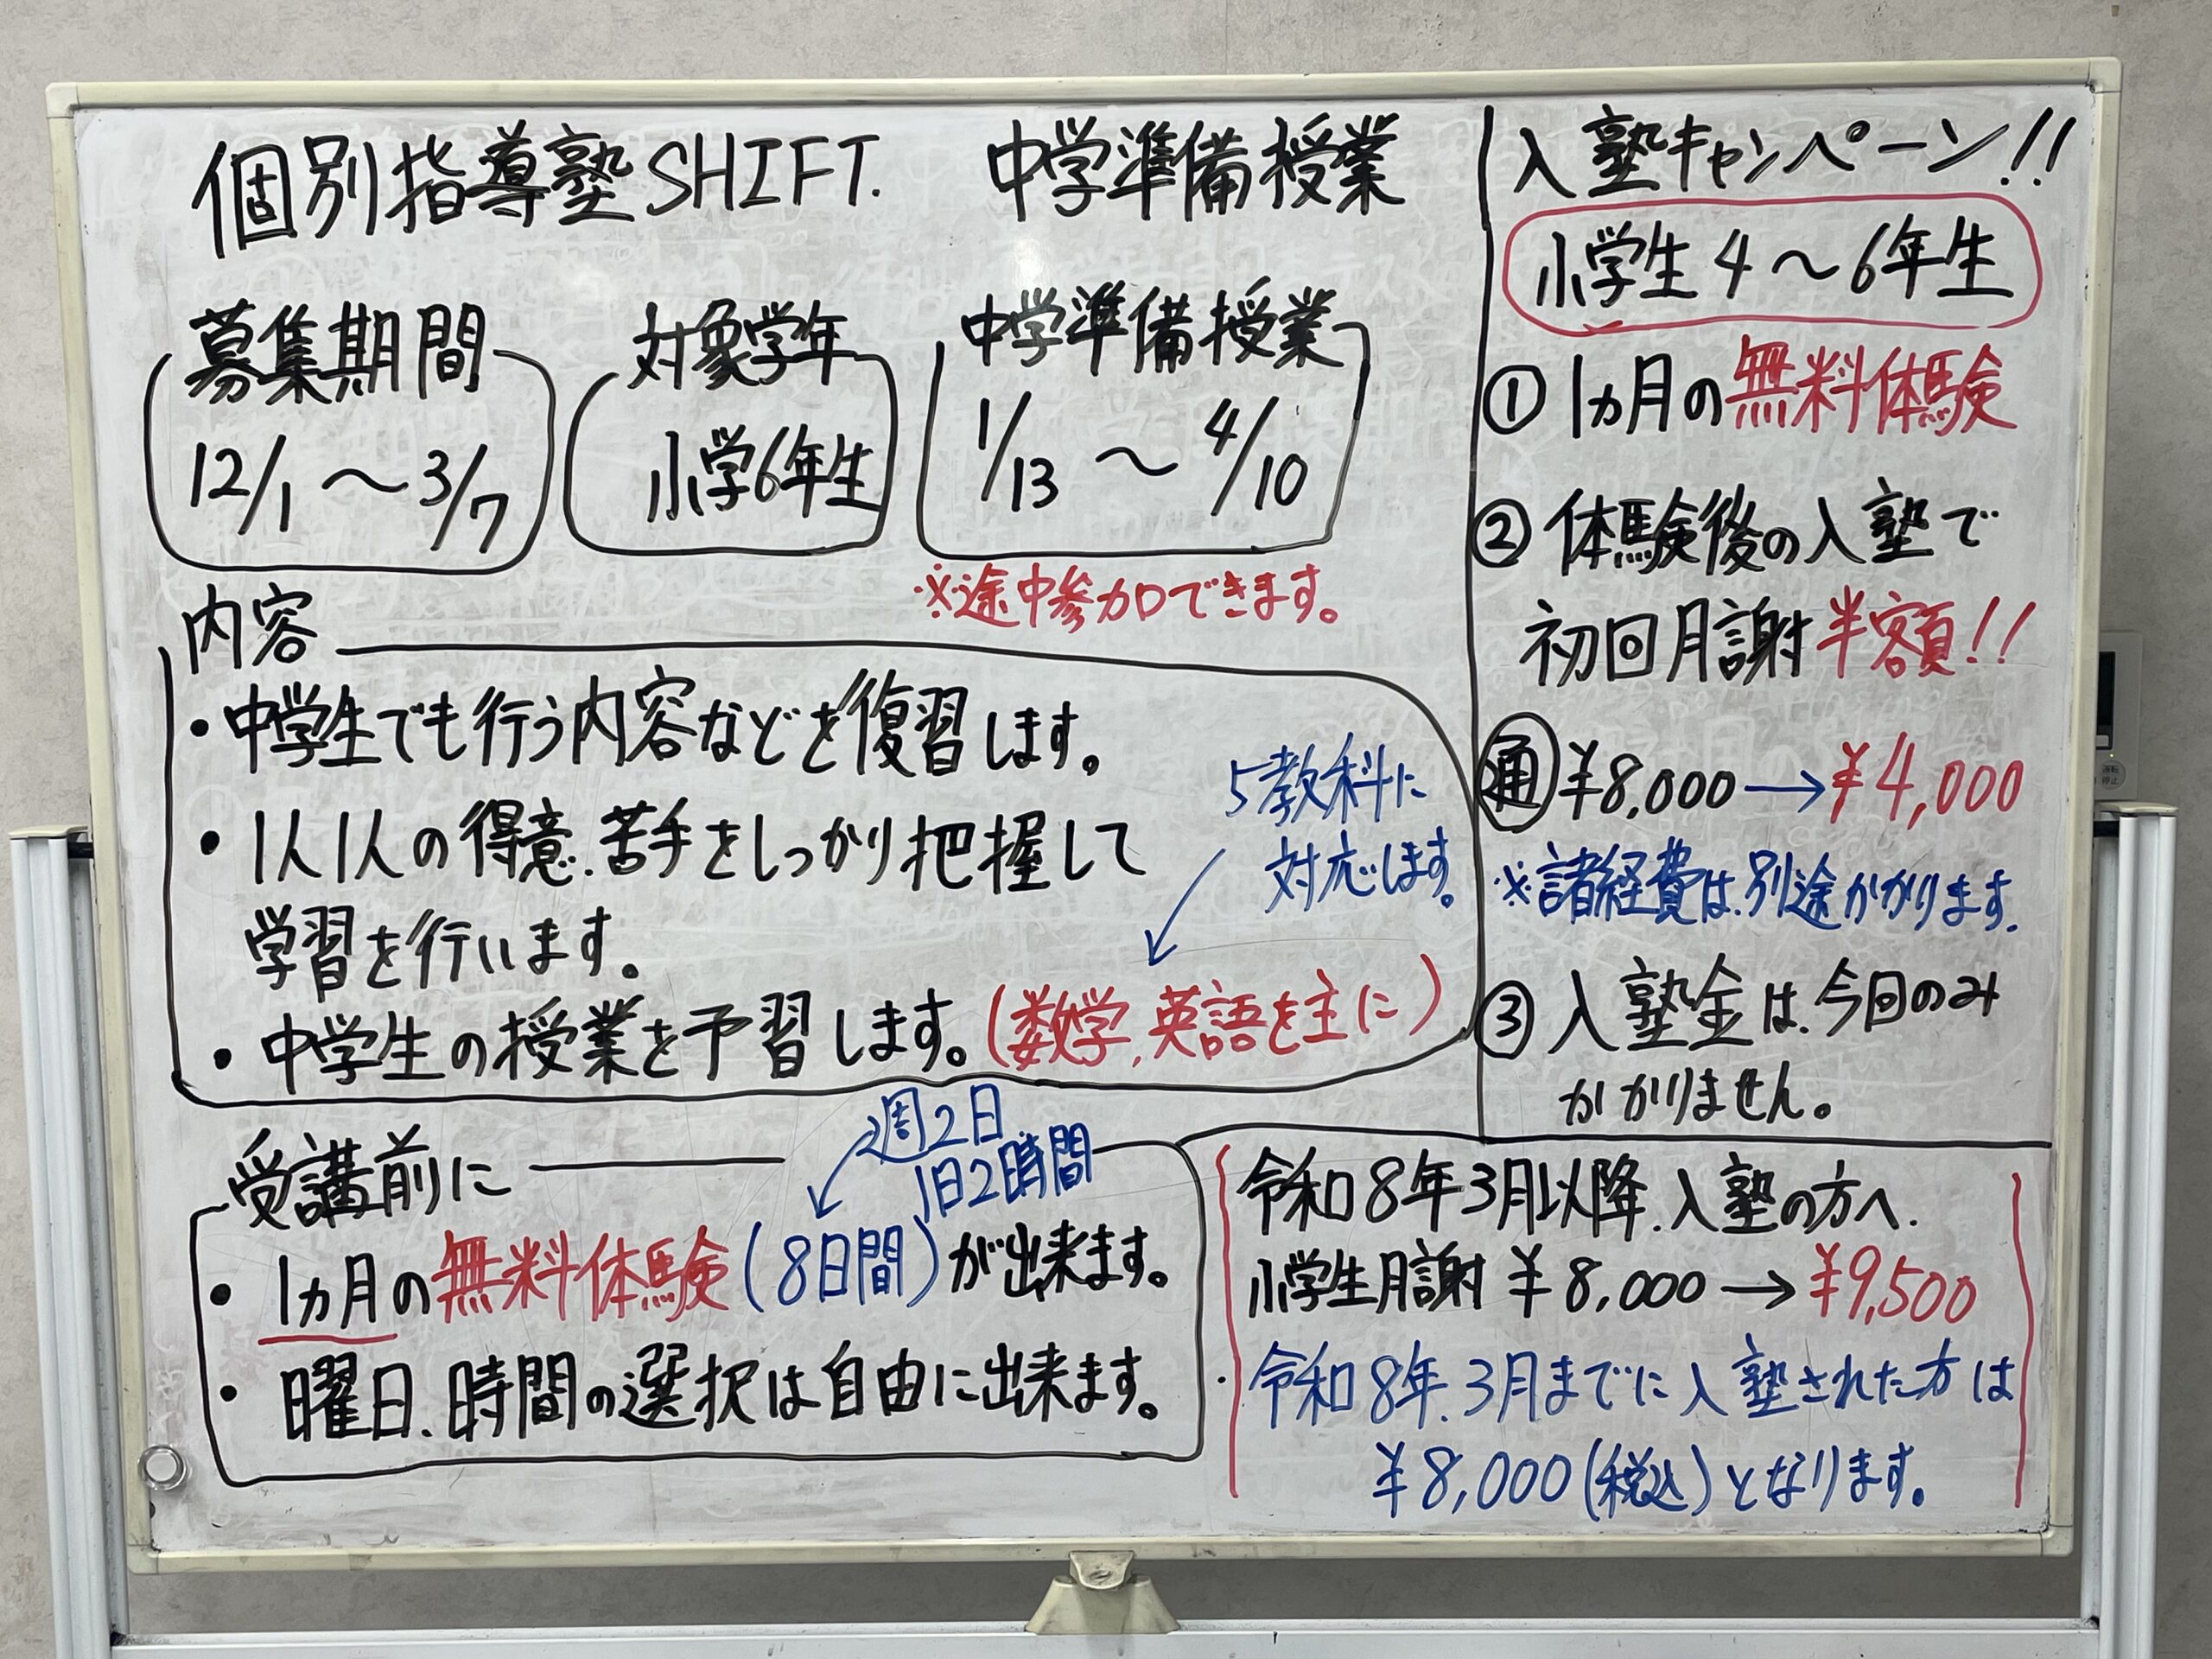 個別指導塾SHIFT. 中学準備授業
募集期間
12/1 ～ 3/7
対象学年
小学6年生
中学準備授業
1/13 ～ 4/10
※途中参加できます。
内容
・中学生でも行う内容などを復習します。
・1人1人の得意.苦手をしっかり把握して
学習を行います。
5教科に
対応します。
・中学生の授業を予習します。(数学,英語を主に)
受講前に
週2日
1日2時間
・1ヵ月の無料体験(8日間)が出来ます。
・曜日.時間の選択は自由に出来ます。
入塾キャンペーン!!
小学生4～6年生
① 1ヵ月の無料体験
② 体験後の入塾で
初回月謝半額!!
通 ¥8,000→¥4,000
※諸経費は.別途かかります.
③ 入塾金は.今回のみ
かかりません。
令和8年3月以降.入塾の方へ.
小学生月謝 ¥8,000→¥9,500
・令和8年.3月までに入塾された方は
¥8,000(税込)となります。